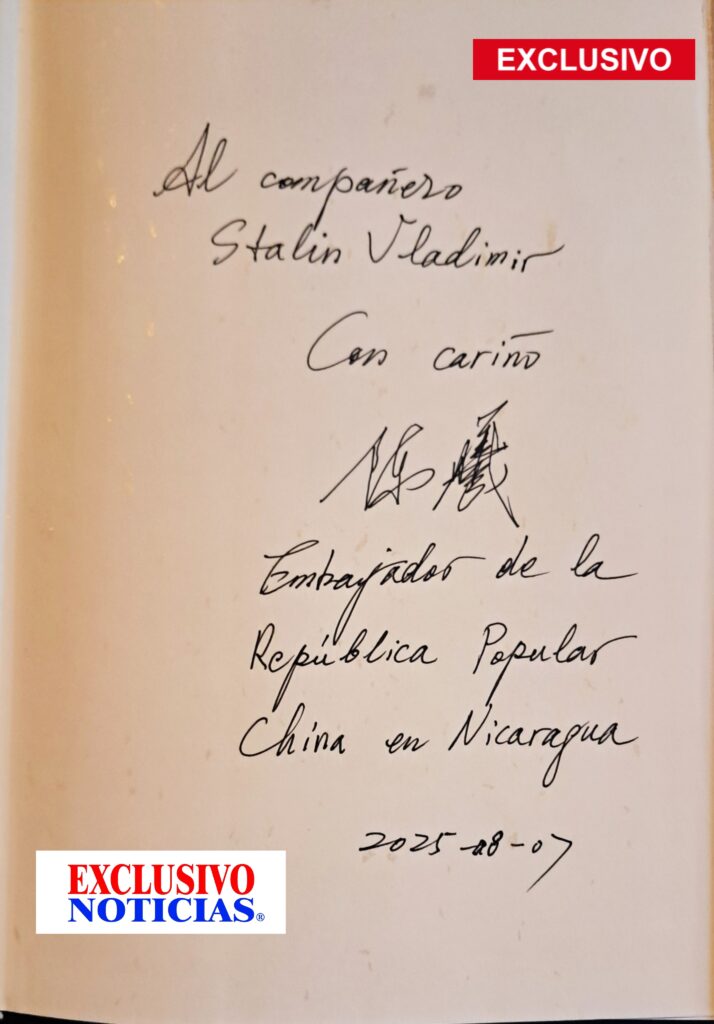 EXCLUSIVO
Al compañero
Stalin Vladimir
Con cariño
陈曦
Embajador de la
República Popular
China en Nicaragua
2025-08-07
EXCLUSIVO
NOTICIAS®